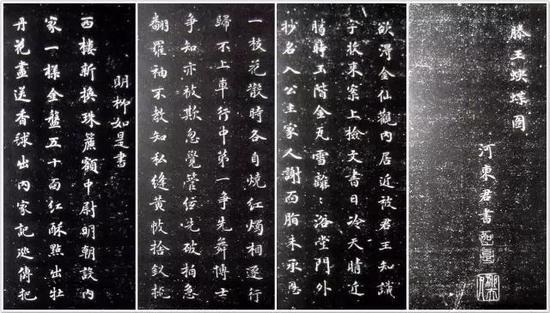 明柳如是書
西樓新換珠簾額中尉明朝設內
家一樣金盤五十面紅酥點出牡
丹花盡送香球出內家記巡傳把
一枝花散時各自燒紅燭相逐行
歸不上車行中第一爭先舞博士
爭知亦被欺忽覺管絃先破拍急
翻羅袖不教知私縫黃帔捨釵梳
欲得金仙觀內居近被君王知識
字收來案上檢文書日冷天晴近
臘時玉階金瓦雪離〻浴堂門外
抄名入公主家人謝面脂未承恩
滕王蛺蝶圖
河東君書